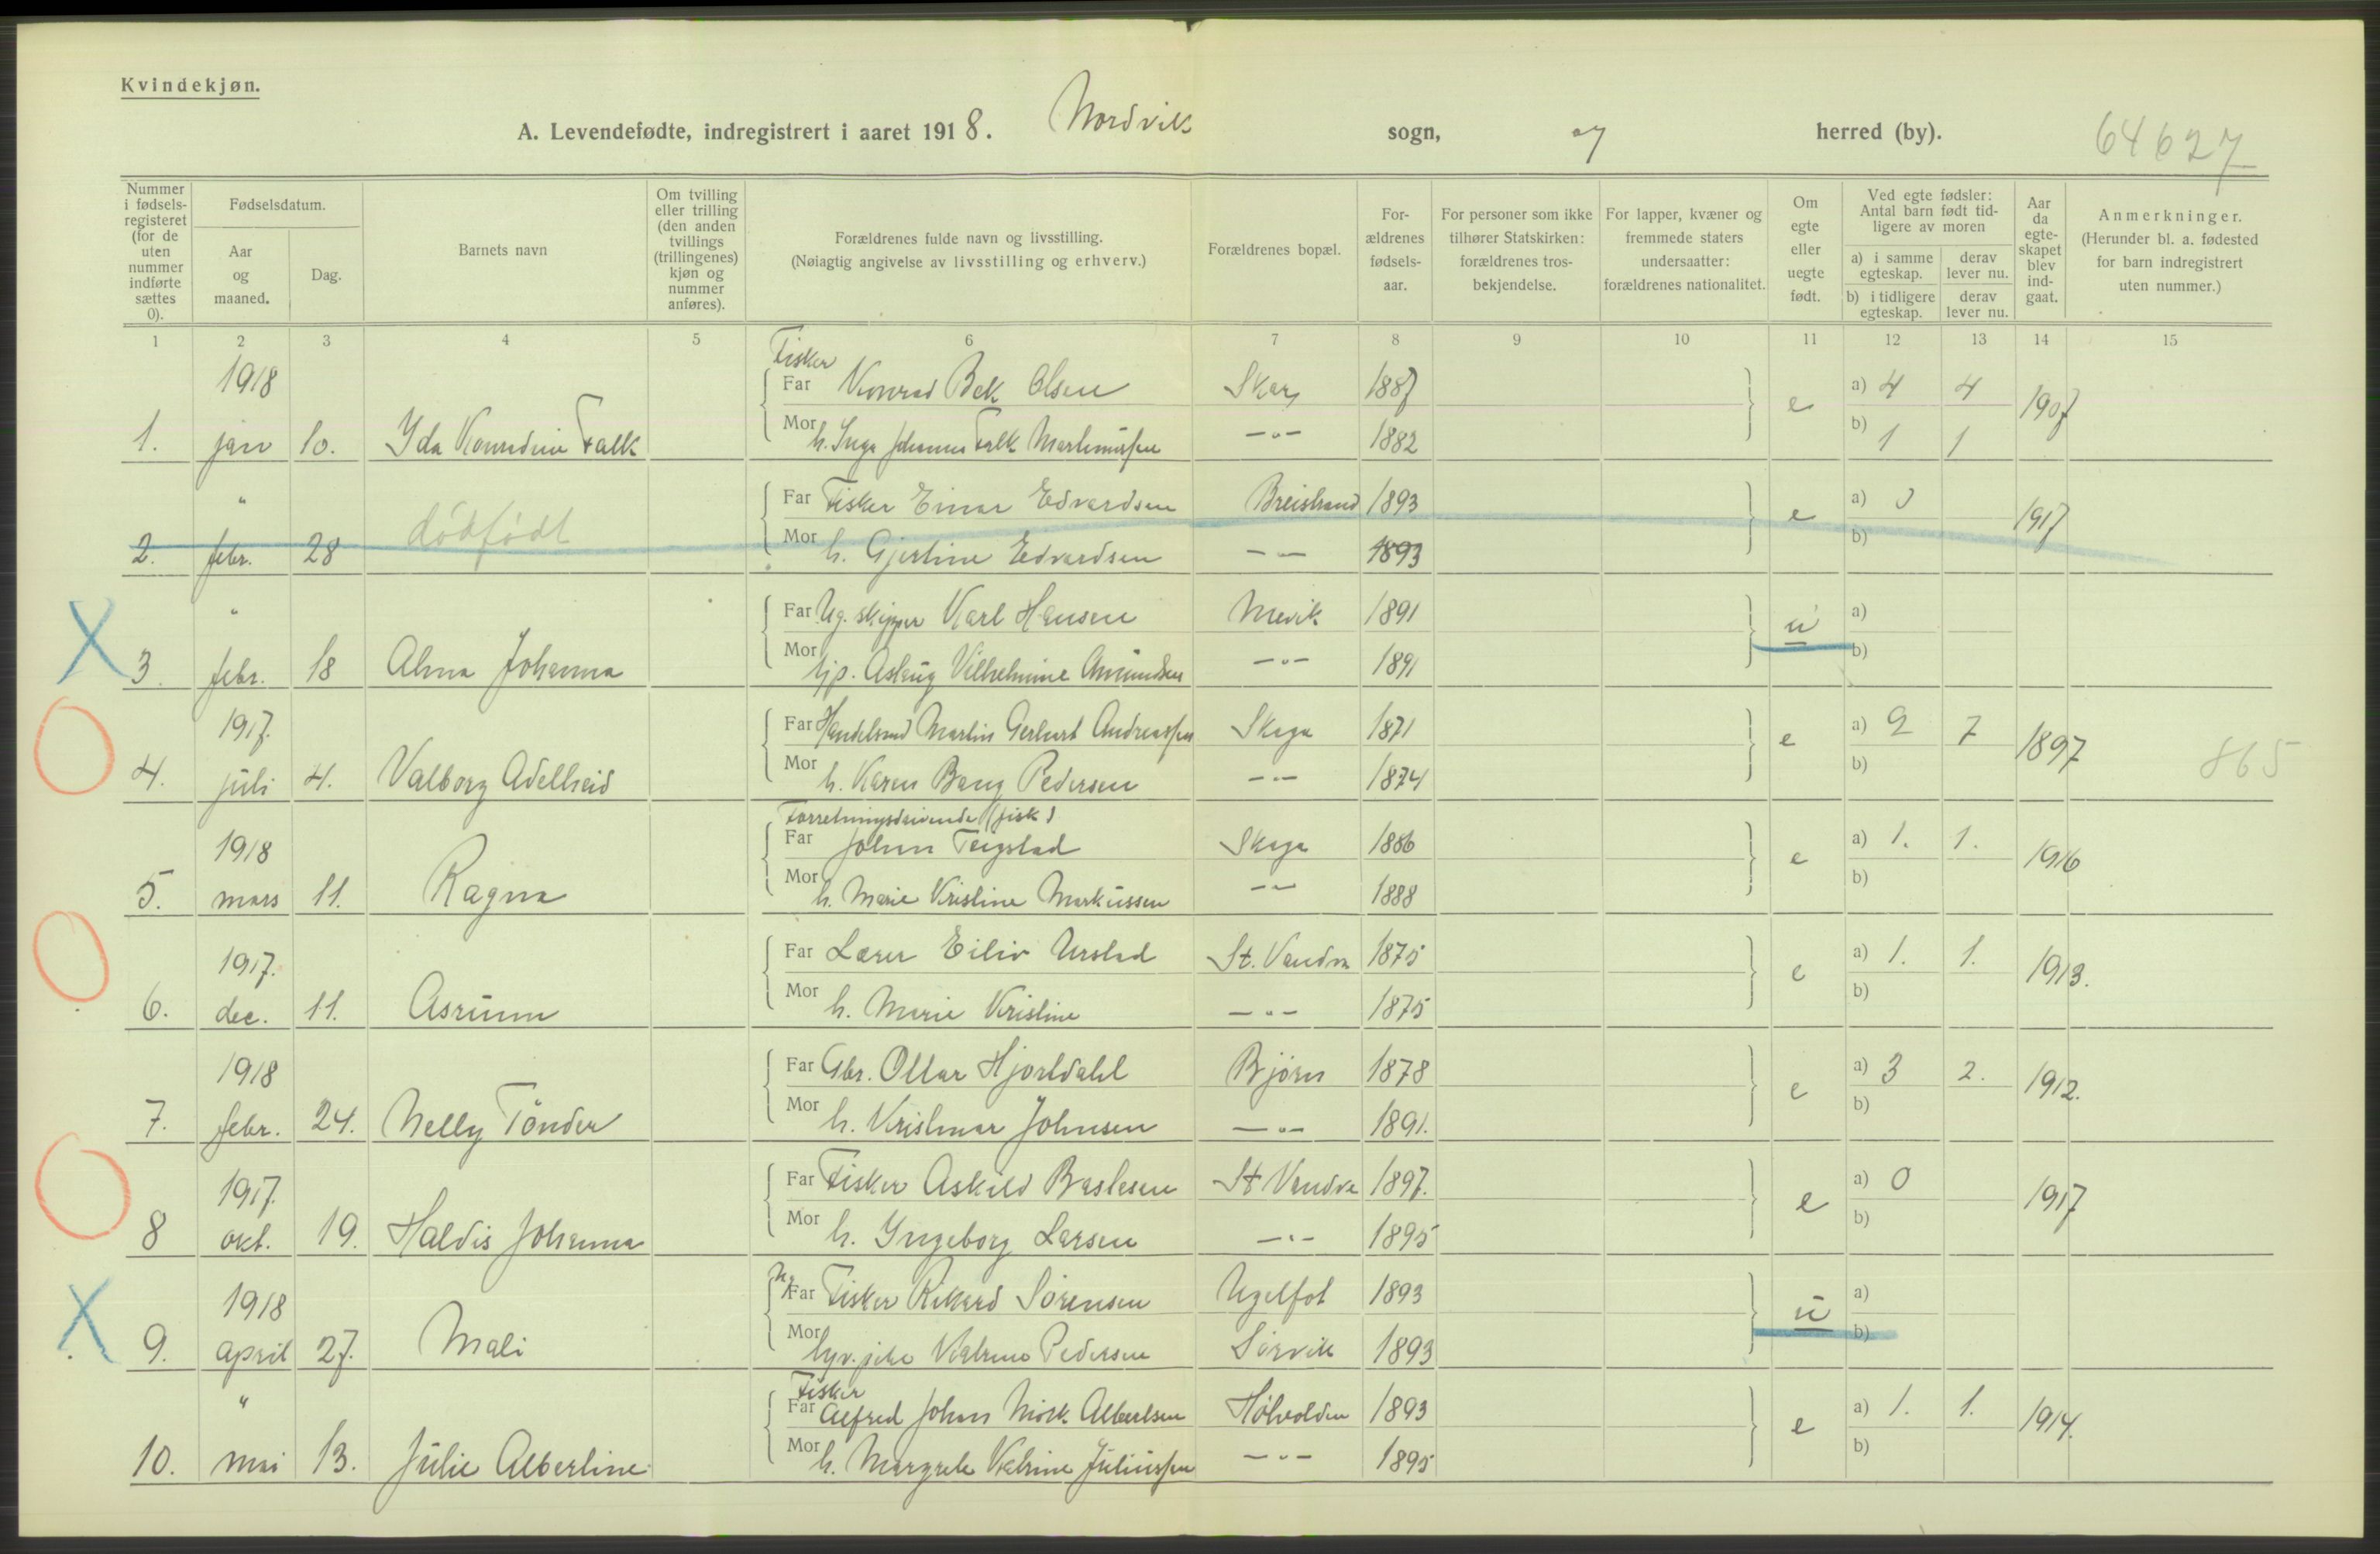 Kvindekjøn.
A. Levendefødte, indregistrert i aaret 1918. Nordvik sogn, og herred (by). 64627
Nummer i fødsels-registeret (for de uten nummer indførte sættes 0).
Fødselsdatum.
Aar og maaned.
Dag.
Barnets navn
Om tvilling eller trilling (den anden tvillings (trillingenes) kjøn og nummer anføres).
Forældrenes fulde navn og livsstilling.
(Nøiagtig angivelse av livsstilling og erhverv.)
Forældrenes bopæl.
For-ældrenes fødsels-aar.
For personer som ikke tilhører Statskirken: forældrenes tros-bekjendelse.
For lapper, kvæner og fremmede staters undersaatter: forældrenes nationalitet.
Om egte eller uegte født.
Ved egte fødsler: Antal barn født tid-ligere av moren
a) i samme egteskap. derav lever nu.
b) i tidligere egteskap. derav lever nu.
Aar da egte-skapet blev ind-gaat.
Anmerkninger.
(Herunder bl. a. fødested for barn indregistrert uten nummer.)
1 2 3 4 5 6 7 8 9 10 11 12 13 14 15
1918 Fisker
Far Konrad Bek Olsen Skar 1887 e a) 4 4 1907
1. jan 10. Ida Konradine Falk Mor h. Inga Johanna Falk Martinussen —"— 1882 b) 1 1
" Far Fisker Einar Edvardsen Breistrand 1893 e a) 0 1917
2. febr. 28 dødfødt Mor h. Gjertine Edvardsen — — 1893 b)
" Far Ug. skipper Karl Hansen Mevik 1891 u a)
3. febr. 18 Alma Johanna Mor tjp. Aslaug Vilhelmine Amundsen —"— 1891 b)
1917. Far Handelsmd Martin Gerhart Andreassen Skaga 1871 e a) 9 7 1897 865
4. juli 4. Valborg Adelheid Mor h. Karen Bang Pedersen —"— 1874 b)
Forretningsdrivende (fisk)
1918 Far Johan Teigstad Skaga 1886 e a) 1. 1. 1916
5. mars 11. Ragna Mor h. Marie Kristine Markussen —"— 1888 b)
1917. Far Lærer Eiliv Urstad St. Vandva 1875 e a) 1. 1. 1913.
6. dec. 11. Asrunn Mor h. Marie Kristine —"— 1875 b)
1918 Far Gbr. Ottar Hjortdahl Bjørn 1878 e a) 3 2. 1912.
7. febr. 24. Nelly Tönder Mor h. Kristmar Johnsen —"— 1891. b)
1917. Far Fisker Askild Baslesen St Vandva 1897. e a) 0 1917
8 okt. 19. Haldis Johanna Mor h. Ingeborg Larsen —"— 1895 b)
1918 Ug. Far Fisker Rikard Sörensen Ugelfot 1893 u a)
9. april 27. Mali Mor tyv. pike Katrine Pedersen Sörvik 1893 b)
Fisker
" Far Alfred Johan Mörk Albertsen Hölvolden 1893 e a) 1. 1. 1914.
10. mai 13. Julie Albertine Mor h. Margrete Katrine Juliussen —"— 1895 b)